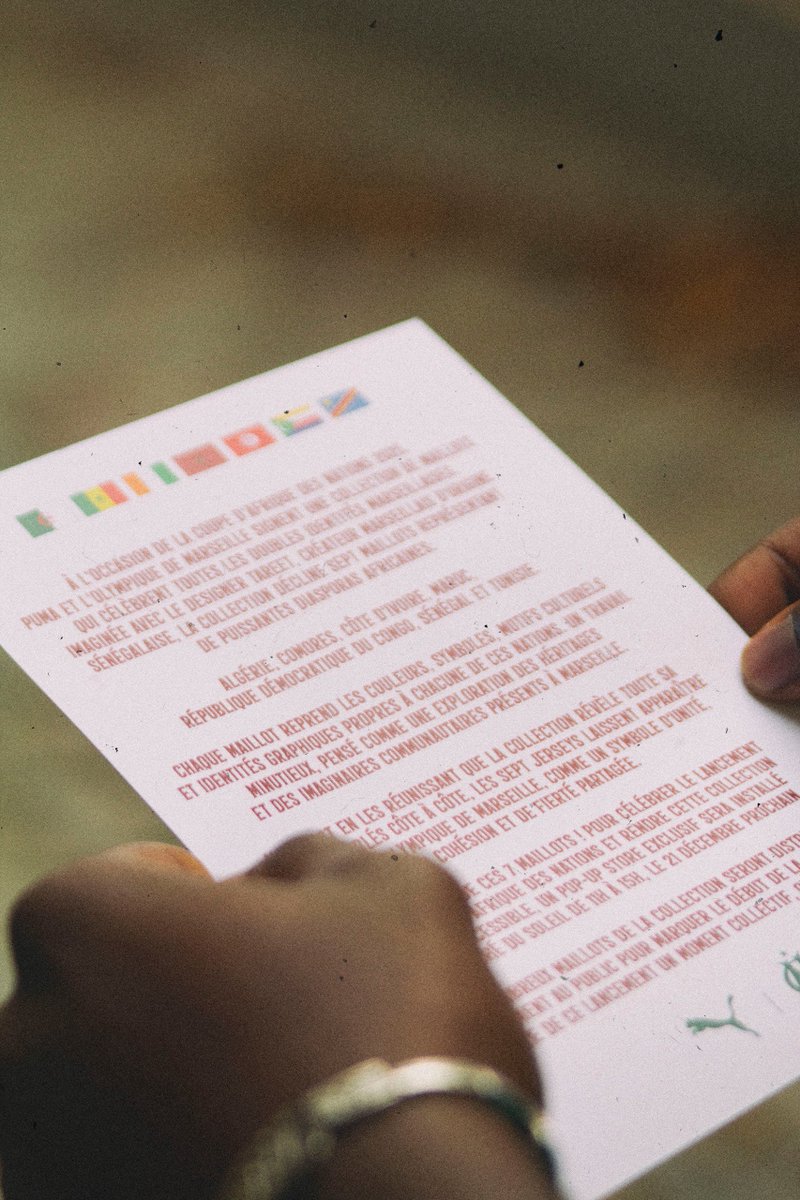 À L'OCCASION DE LA COUPE D'AFRIQUE DES NATIONS 2025
PUMA ET L'OLYMPIQUE DE MARSEILLE SIGNENT UNE COLLECTION
QUI CÉLÈBRENT TOUTES LES DOUBLES IDENTITÉS MARSEILLAISES.
IMAGINÉE AVEC LE DESIGNER TAREET, CRÉATEUR MARSEILLAIS D'ORIGINE
SÉNÉGALAISE, LA COLLECTION DÉCLINE SEPT MAILLOTS REPRÉSENTANT
DE PUISSANTES DIASPORAS AFRICAINES.
ALGÉRIE, COMORES, CÔTE D'IVOIRE, MAROC
RÉPUBLIQUE DÉMOCRATIQUE DU CONGO, SÉNÉGAL ET TUNISIE
CHAQUE MAILLOT REPREND LES COULEURS, SYMBOLES, MOTIFS CULTURELS
ET IDENTITÉS GRAPHIQUES PROPRES À CHACUNE DE CES NATIONS. UN TRAVAIL
MINUTIEUX, PENSÉ COMME UNE EXPLORATION DES HÉRITAGES
ET DES IMAGINAIRES COMMUNAUTAIRES PRÉSENTS À MARSEILLE.
EN LES RÉUNISSANT QUE LA COLLECTION RÉVÈLE TOUTE SA
CÔTE À CÔTE, LES SEPT JERSEYS LAISSENT APPARAÎTRE
DE MARSEILLE, COMME UN SYMBOLE D'UNITÉ,
ET DE FIERTÉ PARTAGÉE.
CES 7 MAILLOTS ! POUR CÉLÉBRER LE LANCEMENT
DES NATIONS ET RENDRE CETTE COLLECTION
UN POP-UP STORE EXCLUSIF SERA INSTALLÉ
DU SOLEIL DE 11H À 15H, LE 21 DÉCEMBRE PROCHAIN
MAILLOTS DE LA COLLECTION SERONT
AU PUBLIC POUR MARQUER LE DÉBUT DE LA
DE CE LANCEMENT UN MOMENT COLLECTIF